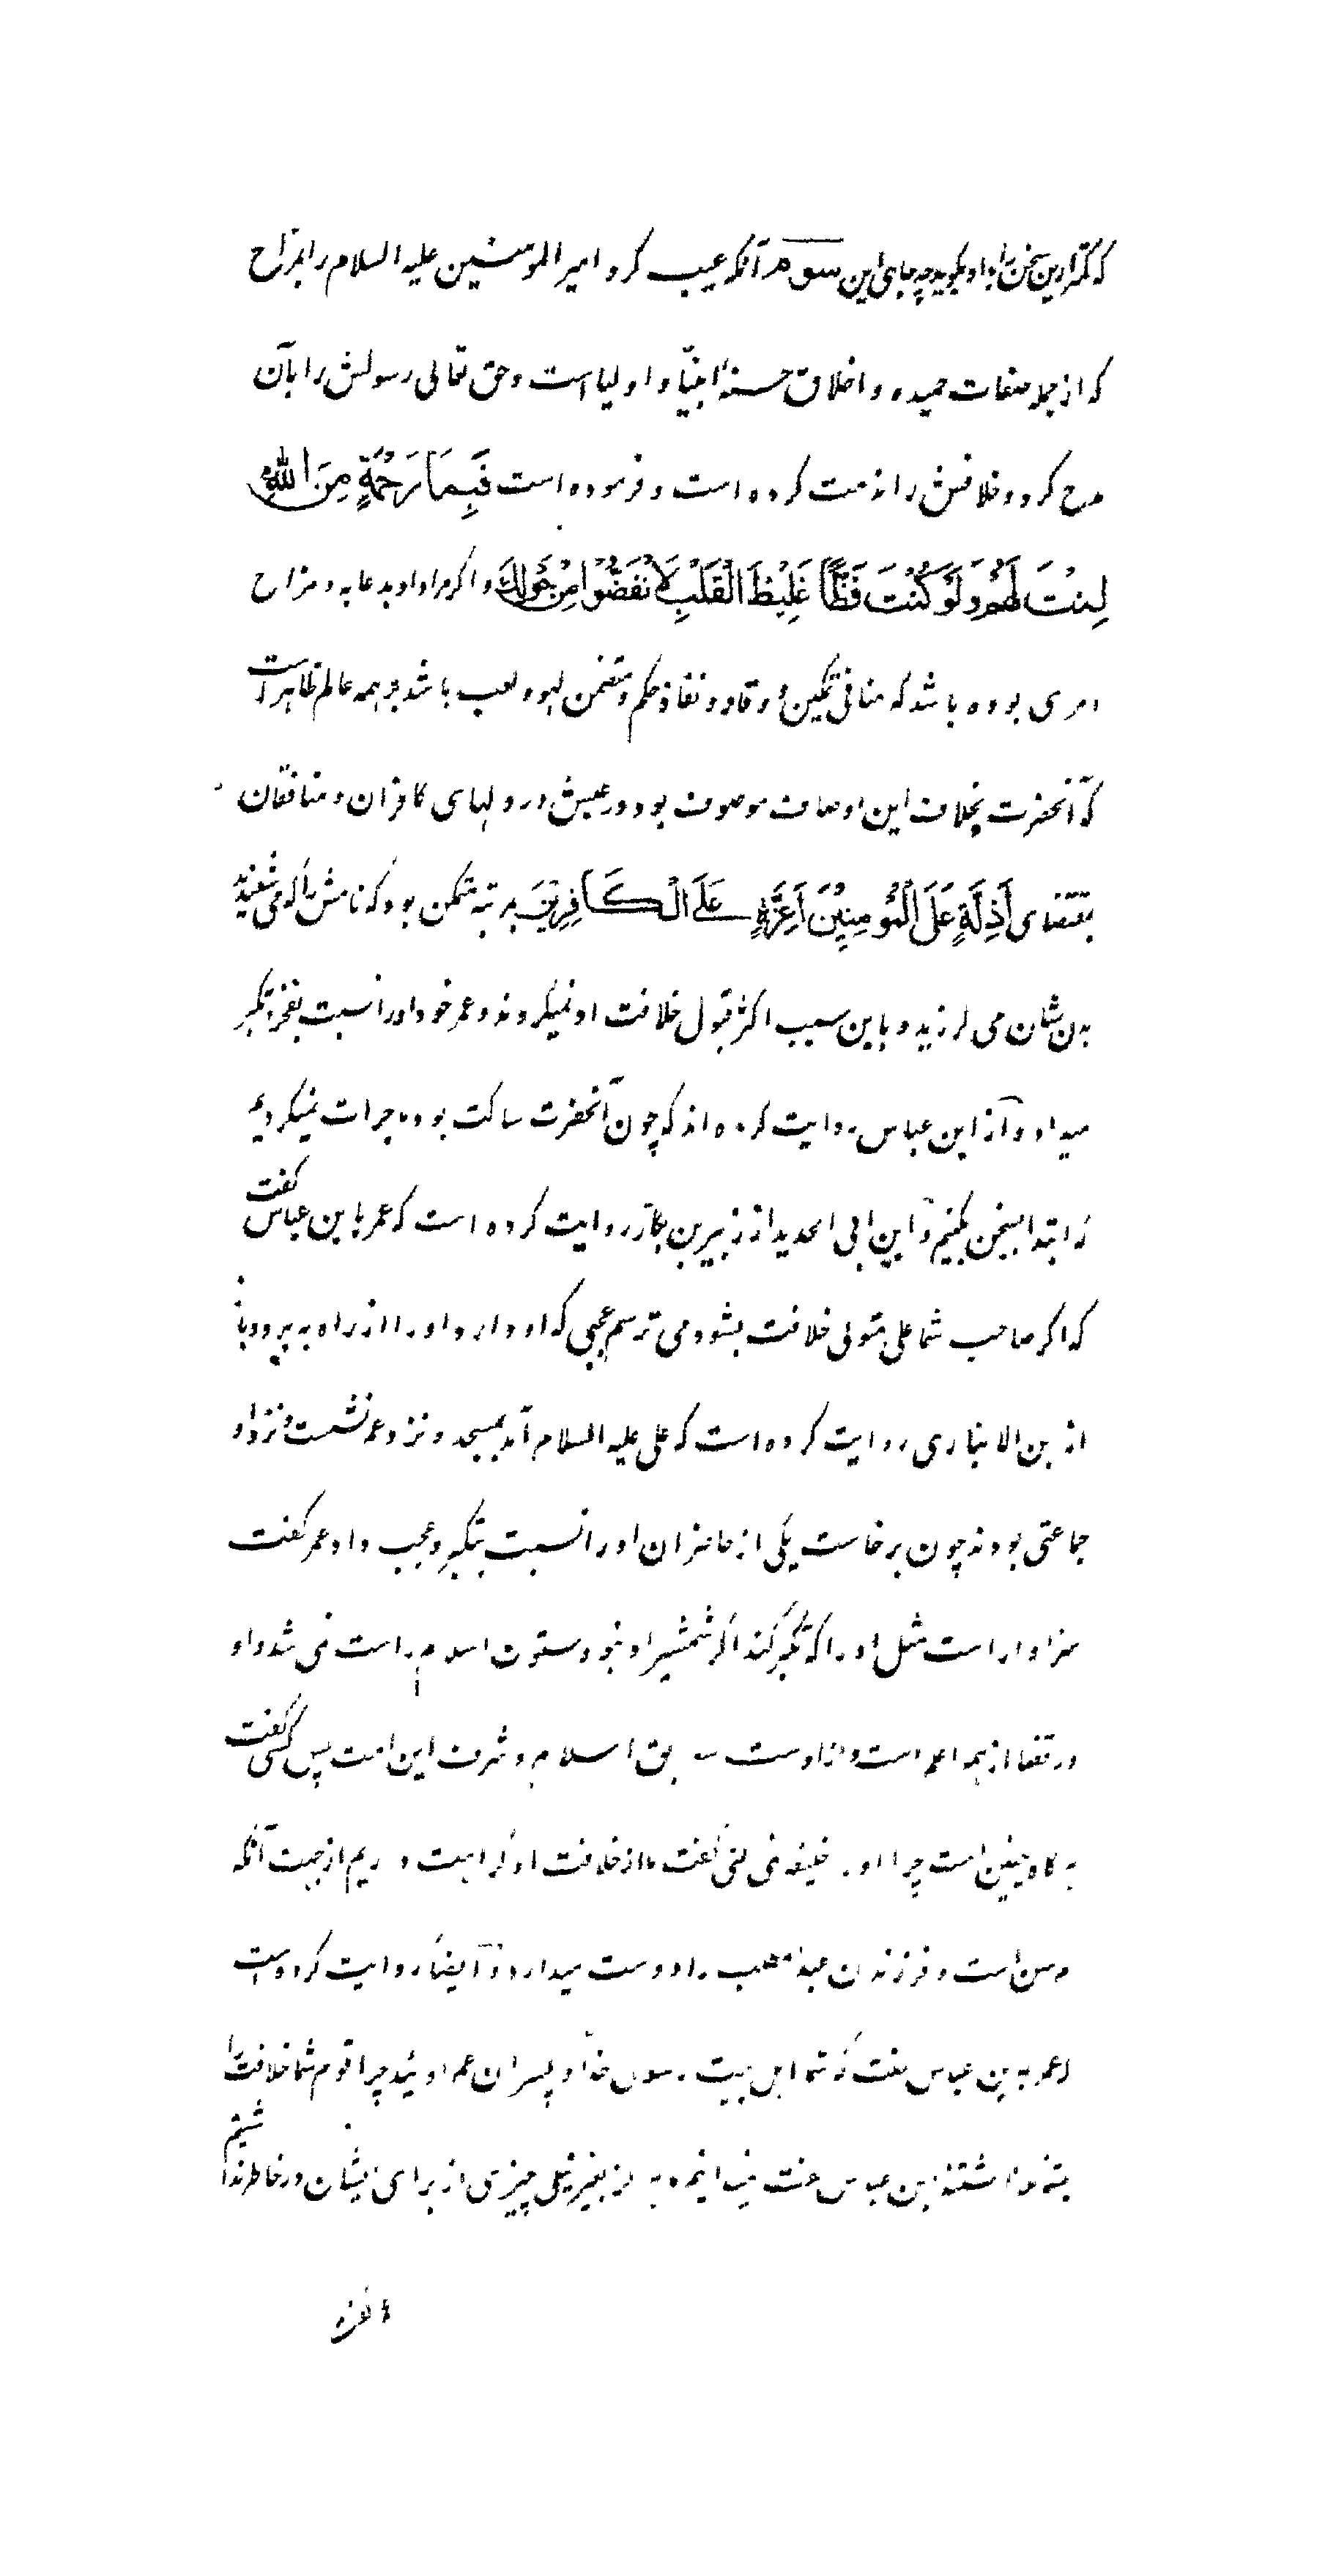 که کمتر ازین سخن را باو بگوید چه جای این سوم آنکه عیب کرد امیر المؤمنین علیه السلام را بمزاح
که از جمله صفات حمیده و اخلاق حسنهٔ انبیا و اولیا است و حق تعالی رسولش را بآن
مدح کرده و خلافش را مذمت کرده است و فرموده است فَبِمَا رَحْمَةٍ مِنَ اللهِ
لِنْتَ لَهُمْ وَلَوْ كُنْتَ فَظًّا غَلِيْظَ الْقَلْبِ لَانْفَضُّوْا مِنْ حَوْلِكَ و اگر مراد او بدعابه و مزاح
امری بوده باشد که منافی تمکین و وقار و نفاذ حکم و متضمن لهو و لعب باشد بر همه عالم ظاهر است
که آنحضرت بخلاف این اوصاف موصوف بود و رعبش در دلهای کافران و منافقان
بمقتضای اَذِلَّةٍ عَلَى الْمُؤْمِنِيْنَ اَعِزَّةٍ عَلَى الْكَافِرِيْنَ بمرتبه متمکن بود که نامش را که می شنیدند
بدن شان می لرزید و باین سبب اکثر قبول خلافت او نمیکردند و عمر خود او را نسبت بفخر و تکبر
میداد و از ابن عباس روایت کرده اند که چون آنحضرت ساکت بود ما جرات نمیکردیم
که ابتدا بسخن بکنیم و ابن ابی الحدید از زبیر بن بکار روایت کرده است که عمر بابن عباس گفت
که اگر صاحب شما علی متولی خلافت بشود می ترسم عجبی که او دارد او را از راه بدر برد و باز
از ابن الانباری روایت کرده است که علی علیه السلام آمد بمسجد و نزد عمر نشست و نزد او
جماعتی بودند چون برخاست یکی از حاضران او را نسبت بتکبر و عجب داد عمر گفت
سزاوار است مثل او را که تکبر کند اگر شمشیر او نبود ستون اسلام راست نمی شد و او
در قضا از همه اعلم است و از اوست سابق اسلام و شرف این امت پس کسی گفت
هرگاه چنین است چرا او را خلیفه نمی کنی گفت ما از خلافت او کراهت داریم از جهت آنکه
کم سن است و فرزندان عبدالمطلب را دوست میدارد و ایضاً روایت کرده است
که عمر به ابن عباس گفت که شما اهل بیت رسول خدا و پسران عم اوئید چرا قوم شما خلافت را
بشما نگذاشتند ابن عباس گفت نمیدانم و بغیر نیکی چیزی از برای ایشان در خاطر نداشتیم